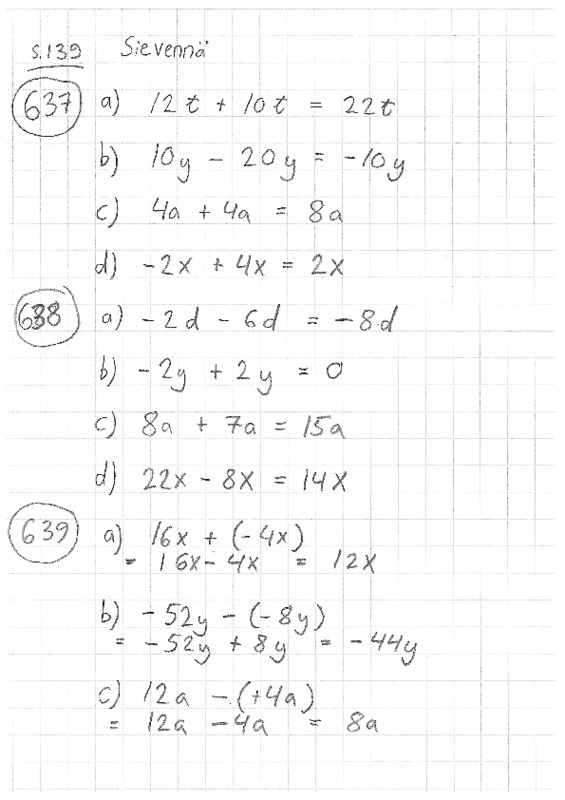 s.139 Sievennä
637 a) 12t + 10t = 22t
b) 10y - 20y = -10y
c) 4a + 4a = 8a
d) -2x + 4x = 2x
638 a) -2d - 6d = -8d
b) -2y + 2y = 0
c) 8a + 7a = 15a
d) 22x - 8x = 14x
639 a) 16x + (-4x)
= 16x - 4x = 12x
b) -52y - (-8y)
= -52y + 8y = -44y
c) 12a - (+4a)
= 12a - 4a = 8a